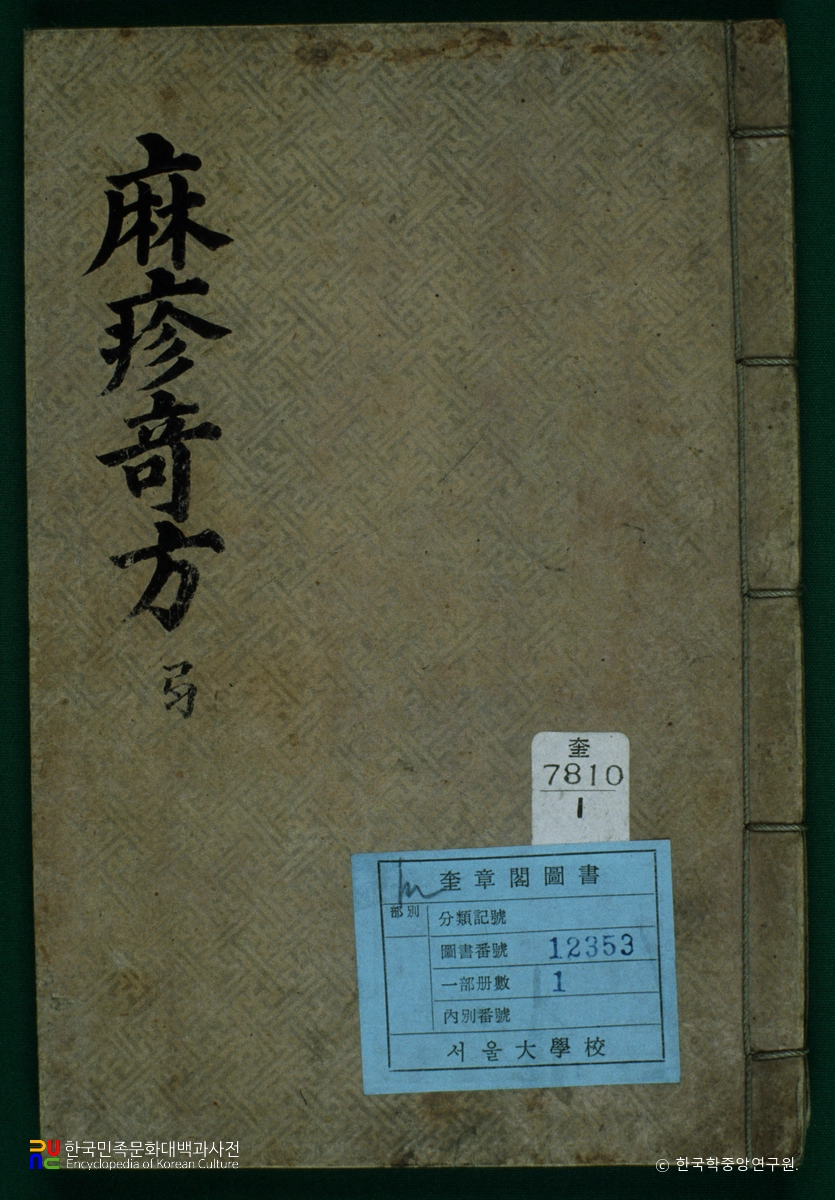 麻疹竒方
奎
7810
1
奎章閣圖書
部別
分類記號
圖書番號 12353
一部册數 1
內別番號
서울大學校
한국민족문화대백과사전
Encyclopedia of Korean Culture
© 한국학중앙연구원.